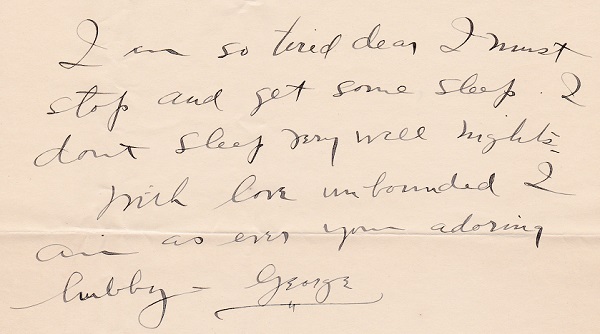 I am so tired dear I must
stop and get some sleep. I
dont sleep very well nights –
With love unbounded I
am as ever your adoring
hubby – George